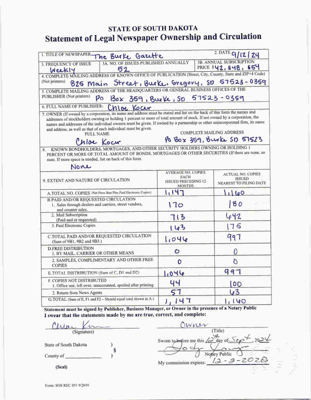 STATE OF SOUTH DAKOTA
Statement of Legal Newspaper Ownership and Circulation
1. TITLE OF NEWSPAPER The Burke Gazette
2. DATE 9/12/24
3. FREQUENCY OF ISSUE Weekly
3A. NO. OF ISSUES PUBLISHED ANNUALLY 52
3B. ANNUAL SUBSCRIPTION PRICE $42, $48, $54
4. COMPLETE MAILING ADDRESS OF KNOWN OFFICE OF PUBLICATION (Street, City, County, State and ZIP+4 Code)
(Not printers) 825 Main Street, Burke, Gregory, SD 57523-0359
5. COMPLETE MAILING ADDRESS OF THE HEADQUARTERS OR GENERAL BUSINESS OFFICES OF THE
PUBLISHER (Not printers) PO Box 359, Burke, SD 57523-0359
6. FULL NAME OF PUBLISHER: Chloe Kocur
7. OWNER (If owned by a corporation, its name and address must be stated and list on the back of this form the names and
addresses of stockholders owning or holding 1 percent or more of total amount of stock. If not owned by a corporation, the
names and addresses of the individual owners must be given. If owned by a partnership or other unincorporated firm, its name
and address, as well as that of each individual must be given.
FULL NAME COMPLETE MAILING ADDRESS
Chloe Kocur PO Box 359, Burke, SD 57523
8. KNOWN BONDHOLDERS, MORTGAGES, AND OTHER SECURITY HOLDERS OWNING OR HOLDING 1
PERCENT OR MORE OF TOTAL AMOUNT OF BONDS, MORTGAGES OR OTHER SECURITIES (If there are none, so
state. If more space is needed, list on back of this form
None
9. EXTENT AND NATURE OF CIRCULATION
AVERAGE NO. COPIES EACH ISSUED PRECEDING 12 MONTHS
ACTUAL NO. COPIES ISSUED NEAREST TO FILING DATE
A. TOTAL NO. COPIES 1,147 1,140
B. PAID AND/OR REQUESTED CIRCULATION
1. Sales through dealers and carriers, street vendors, and counter sales. 170 180
2. Mail Subscription (Paid and/or requested) 713 642
3. Paid Electronic Copies 163 175
C. TOTAL PAID AND/OR REQUESTED CIRCULATION
(Sum of 9B1, 9B2 and 9B3.) 1,046 997
D. FREE DISTRIBUTION
1. BY MAIL, CARRIER OR OTHER MEANS 0 0
2. SAMPLES, COMPLIMENTARY AND OTHER FREE COPIES 0 0
E. TOTAL DISTRIBUTION (Sum of C, D1 and D2) 1,046 997
F. COPIES NOT DISTRIBUTED
1. Office use, left over, unaccounted, spoiled after printing 44 100
2. Return from News Agents 57 43
G. TOTAL (Sum of E, F1 and F2 - Should equal total shown in A.) 1,147 1,140
Statement must be signed by Publisher, Business Manager, or Owner in the presence of a Notary Public
I swear that the statements made by me are true, correct, and complete:
Owner
(Signature) (Title)
State of South Dakota )
§
County of )
Sworn to before me this 12th day of Sept, 2024
Notary Public
(Seal)
My commission expires: 12-2-2028